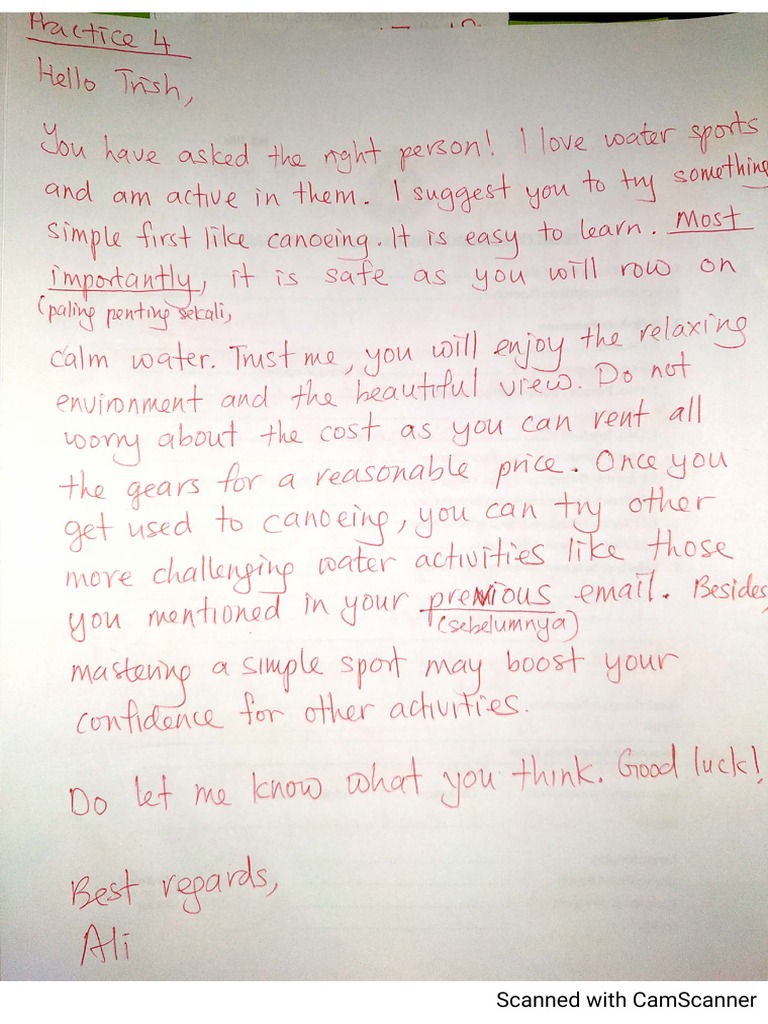 Practice 4
Hello Trish,
You have asked the right person! I love water sports
and am active in them. I suggest you to try something
simple first like canoeing. It is easy to learn. Most
importantly, it is safe as you will row on
(paling penting sekali,
calm water. Trust me, you will enjoy the relaxing
environment and the beautiful view. Do not
worry about the cost as you can rent all
the gears for a reasonable price. Once you
get used to canoeing, you can try other
more challenging water activities like those
you mentioned in your previous email. Besides,
(sebelumnya)
mastering a simple sport may boost your
confidence for other activities.
Do let me know what you think. Good luck!
Best regards,
Ali
Scanned with CamScanner